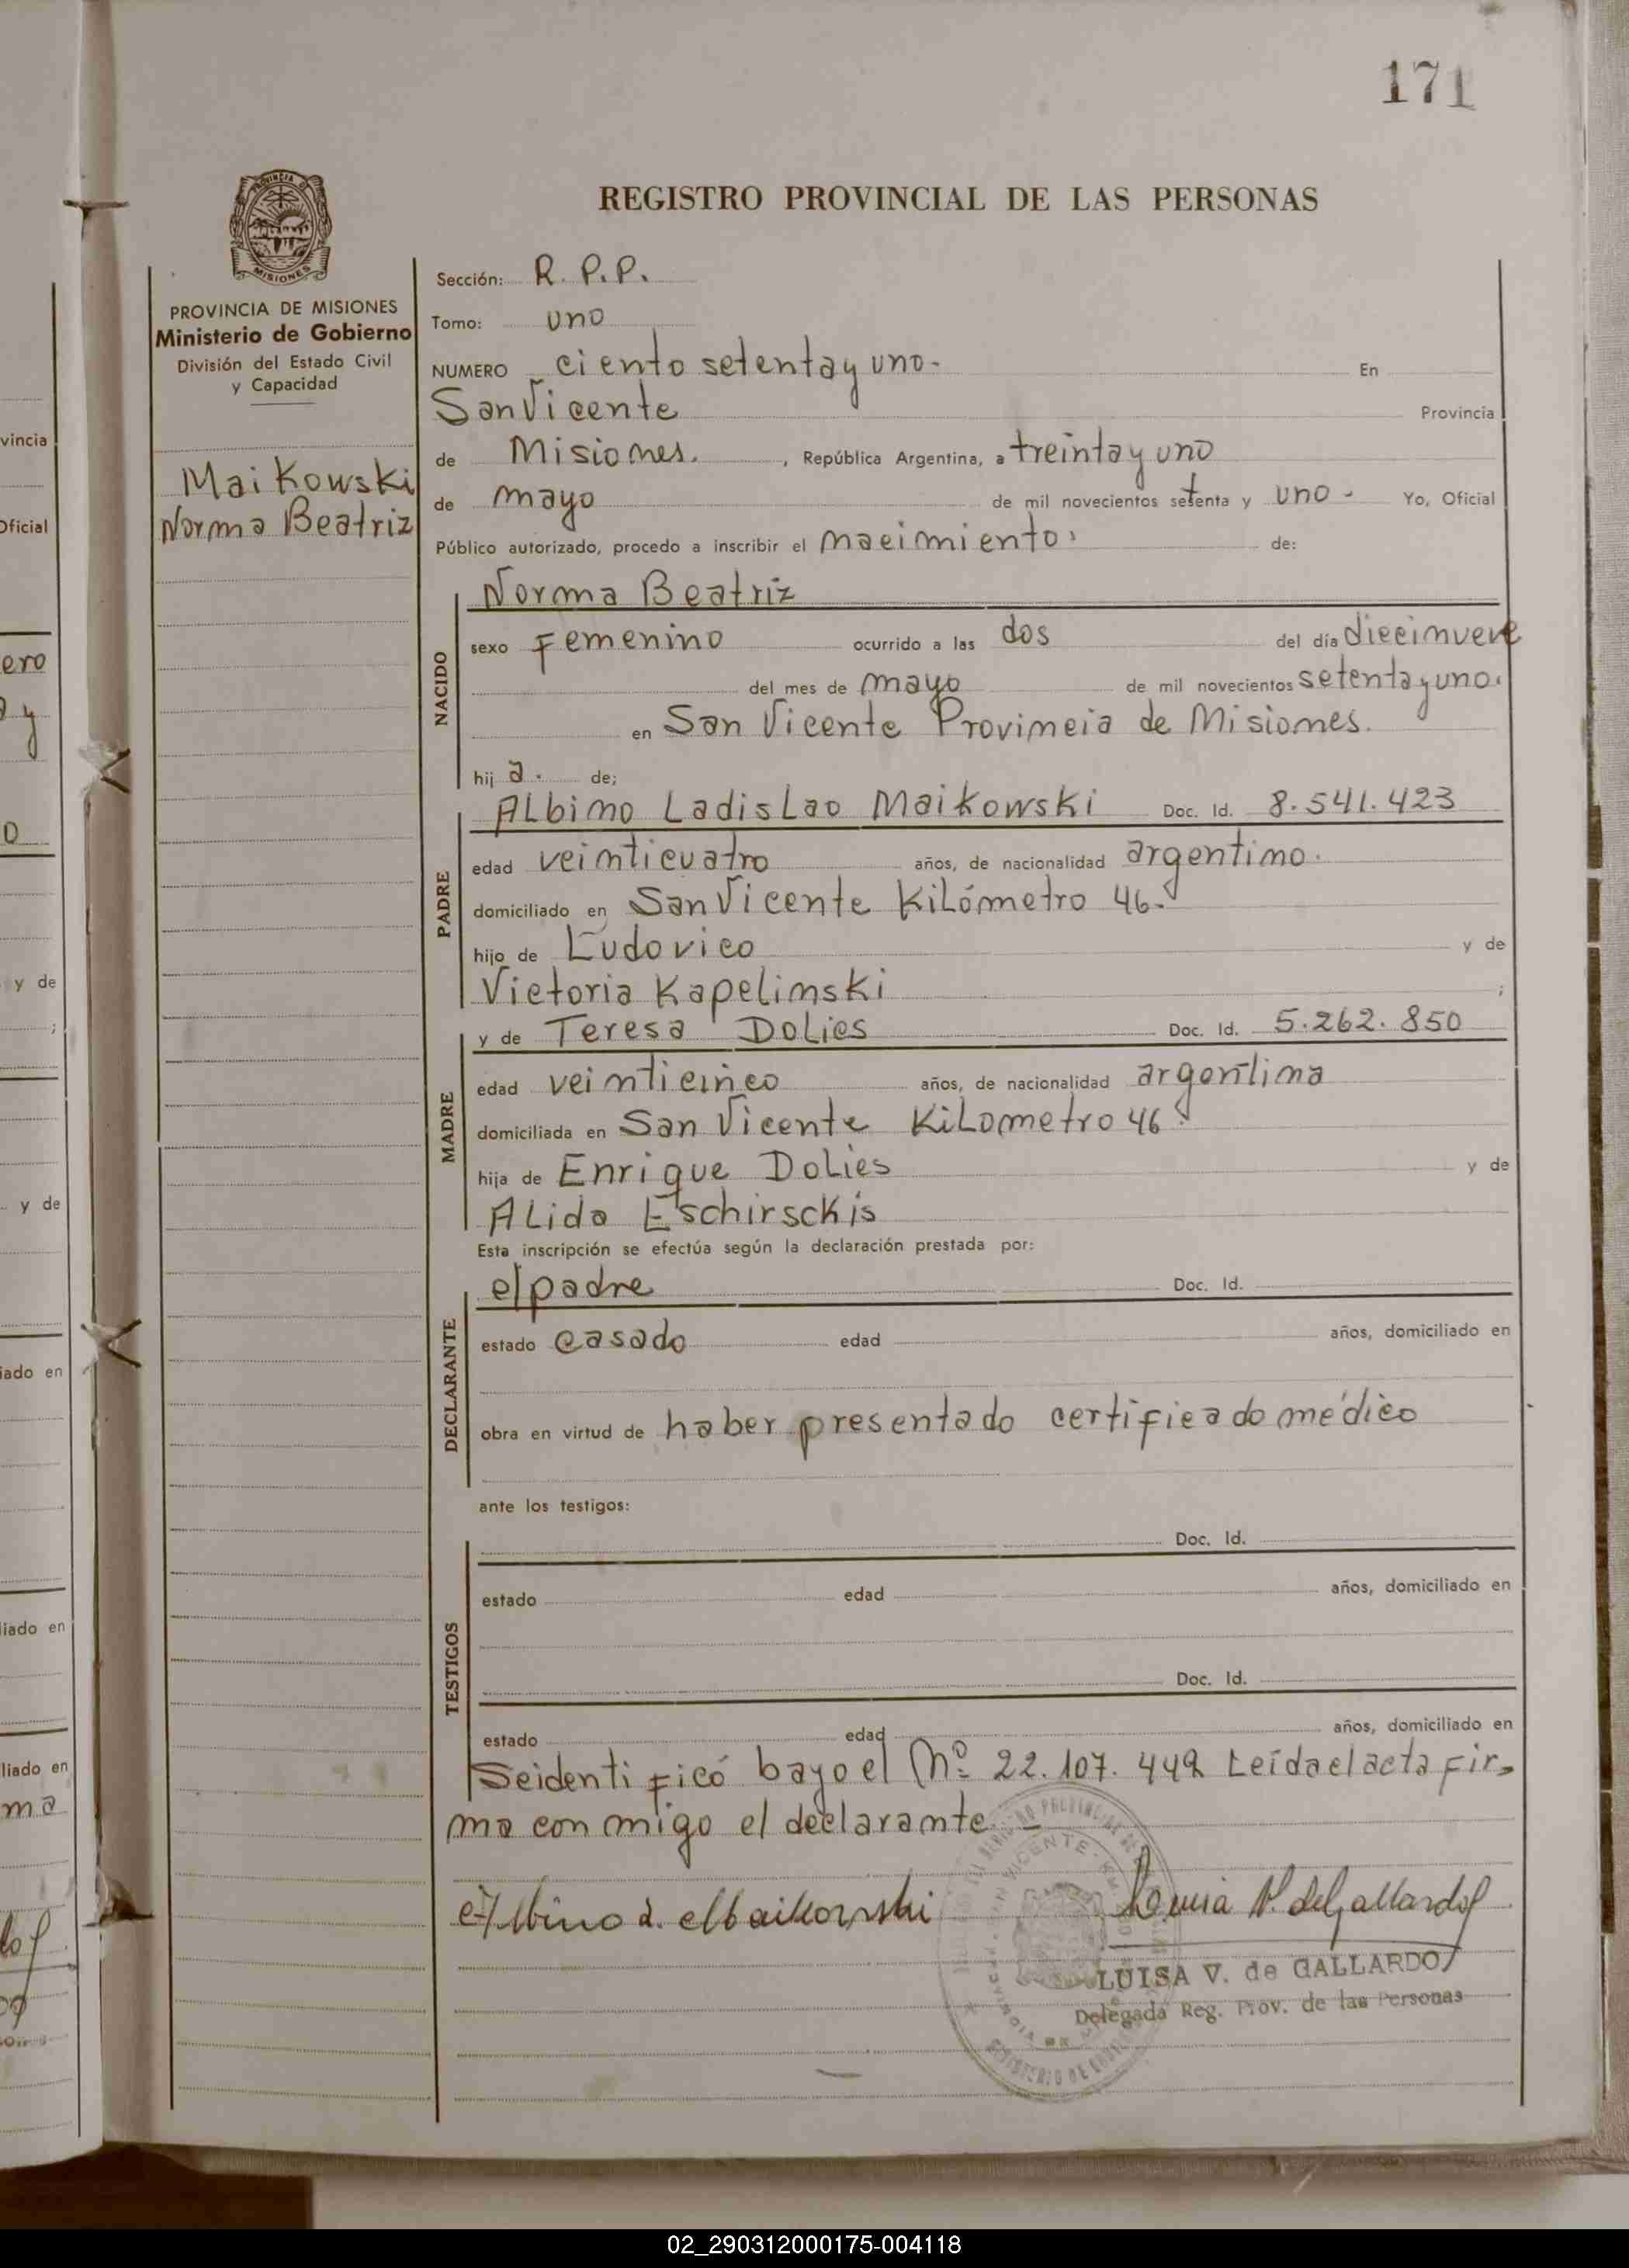 171
REGISTRO PROVINCIAL DE LAS PERSONAS
MISIONES
PROVINCIA DE MISIONES
Ministerio de Gobierno
División del Estado Civil
y Capacidad
Maikowski
Norma Beatriz
Sección: R. P.P.
Tomo: uno
NUMERO ciento setenta y uno- En
San Vicente Provincia
de Misiones. , República Argentina, a treinta y uno
de mayo de mil novecientos setenta y uno - Yo, Oficial
Público autorizado, procedo a inscribir el nacimiento: de:
NACIDO
Norma Beatriz
sexo Femenino ocurrido a las dos del día diecinueve
del mes de mayo de mil novecientos setenta y uno.
en San Vicente Provincia de Misiones.
hij a. de;
PADRE
Albino Ladislao Maikowski Doc. Id. 8.541.423
edad veinticuatro años, de nacionalidad argentino.
domiciliado en San Vicente Kilómetro 46.
hijo de Ludovico y de
Victoria Kapelinski ;
MADRE
y de Teresa Dolies Doc. Id. 5.262.850
edad veinticinco años, de nacionalidad argentina
domiciliada en San Vicente Kilometro 46.
hija de Enrique Dolies y de
Alida Eschirsckis
Esta inscripción se efectúa según la declaración prestada por:
DECLARANTE
el padre Doc. Id.
estado casado edad años, domiciliado en
obra en virtud de haber presentado certificado médico
ante los testigos:
TESTIGOS
Doc. Id.
estado edad años, domiciliado en
Doc. Id.
estado edad años, domiciliado en
Se identificó bayo el Nº 22.107.442 Leída el acta fir-
ma con migo el declarante. -
Albino L. Maikowski Luisa V. de Gallardo
LUISA V. de GALLARDO
Delegada Reg. Prov. de las Personas
vincia
Oficial
ero
a y
o
y de
;
y de
iado en
liado en
liado en
ma
02_290312000175-004118